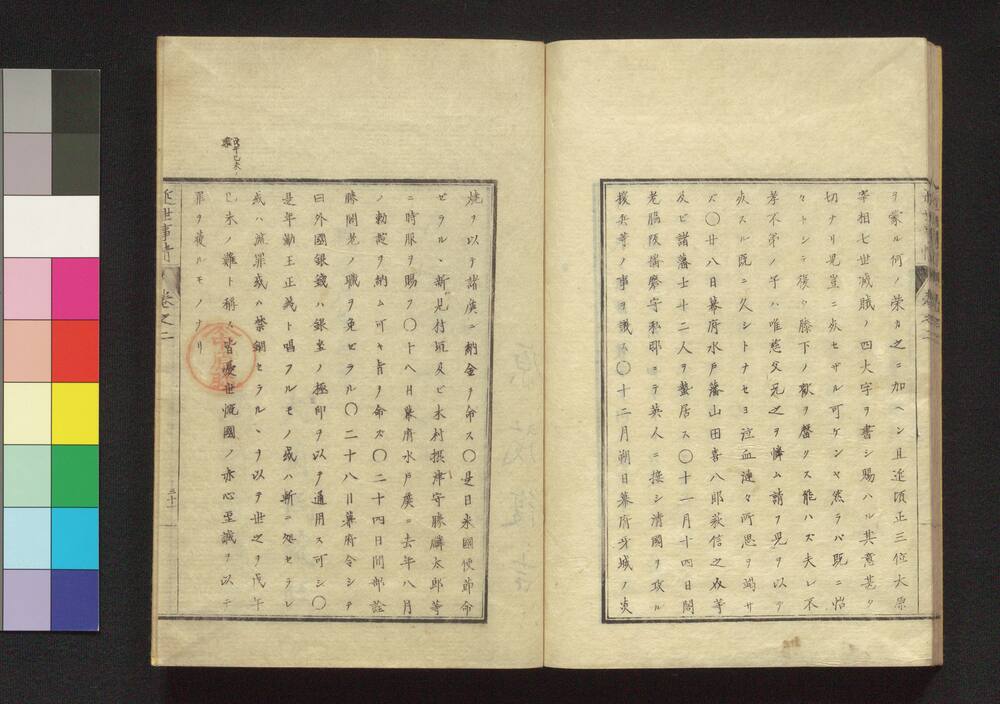 ヲ蒙ル何ノ榮カ之ニ加ヘン且近頃正三位大原
宰相七世滅賊ノ四大字ヲ書シ賜ハル其意甚タ
切ナリ兄豈ニ炎セザル可ケンヤ然ラハ既ニ怡
々トシテ復タ膝下ノ歓ヲ罄クス能ハズ夫レ不
孝不弟ノ子ハ唯慈父兄之ヲ憐ム請フ兄ヲ以テ
炎スル既ニ久シトナセヨ泣血漣々所思ヲ竭サ
ズ〇廿八日幕府水戸藩山田喜八郎萩信之允等
及ビ諸藩士十二人ヲ蟄居ス〇十一月十四日閣
老脇阪播磨守私邸ニテ英人ニ接シ清國ヲ攻ル
援兵等ノ事ヲ議ス〇十二月朔日幕府牙城ノ炎
焼ヲ以テ諸庚ニ納金ヲ命ス〇是日米國使節命
ゼラル、新見村垣及ビ木村摂津守勝麟太郎等
ニ時服ヲ賜フ〇十八日幕府水戸庚ニ去年八月
ノ勅諚ヲ納ム可キ旨ヲ命ズ〇二十四日間部詮
勝閣老ノ職ヲ免ゼラル〇二十八日幕府令シテ
曰外國銀銭ハ銀座ノ極印ヲ以テ通用ス可シ〇
是年勤王正義ト唱フルモノ或ハ斬ニ処セラレ
或ハ流罪或ハ禁錮セラル、ヲ以テ世之ヲ戊午
己未ノ難ト称ス皆憂世慨國ノ赤心至誠ヲ以テ
罪ヲ獲ルモノナリ
戊午己未ノ
難
近世事情
卷之一
三十一